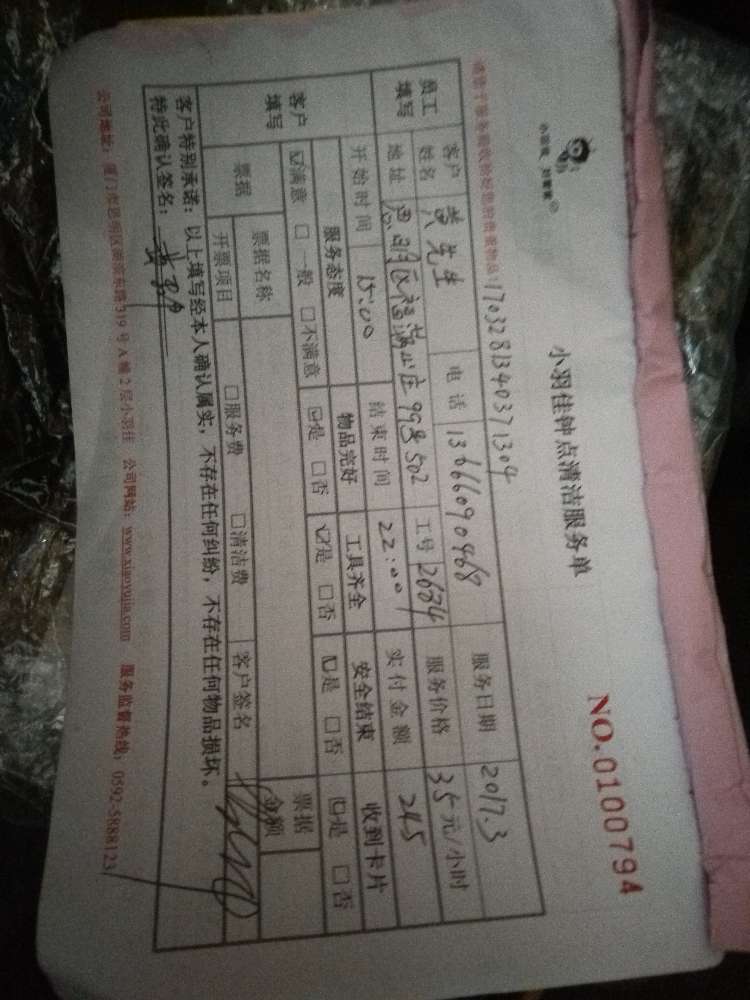 小羽佳钟点清洁服务单
NO.0100794
1703281340371304
员工填写 客户姓名 黄先生 电话 13666090468 服务日期 2017.3
地址 思明区福满山庄99号502 工号 2634 服务价格 35元/小时
开始时间 15:00 结束时间 22:00 实付金额 245
客户填写 服务态度 物品完好 工具齐全 安全结束 收到卡片
☑满意 □一般 □不满意 ☑是 □否 ☑是 □否 ☑是 □否 ☑是 □否
票据 票据名称 票据金额
开票项目 □服务费 □清洁费 客户签名
客户特别承诺：以上填写经本人确认属实，不存在任何纠纷，不存在任何物品损坏。
特此确认签名：
公司地址：厦门市思明区湖滨东路319号A幢2层小羽佳 公司网站：www.xiaoyujia.com 服务监督热线：0592-5888123